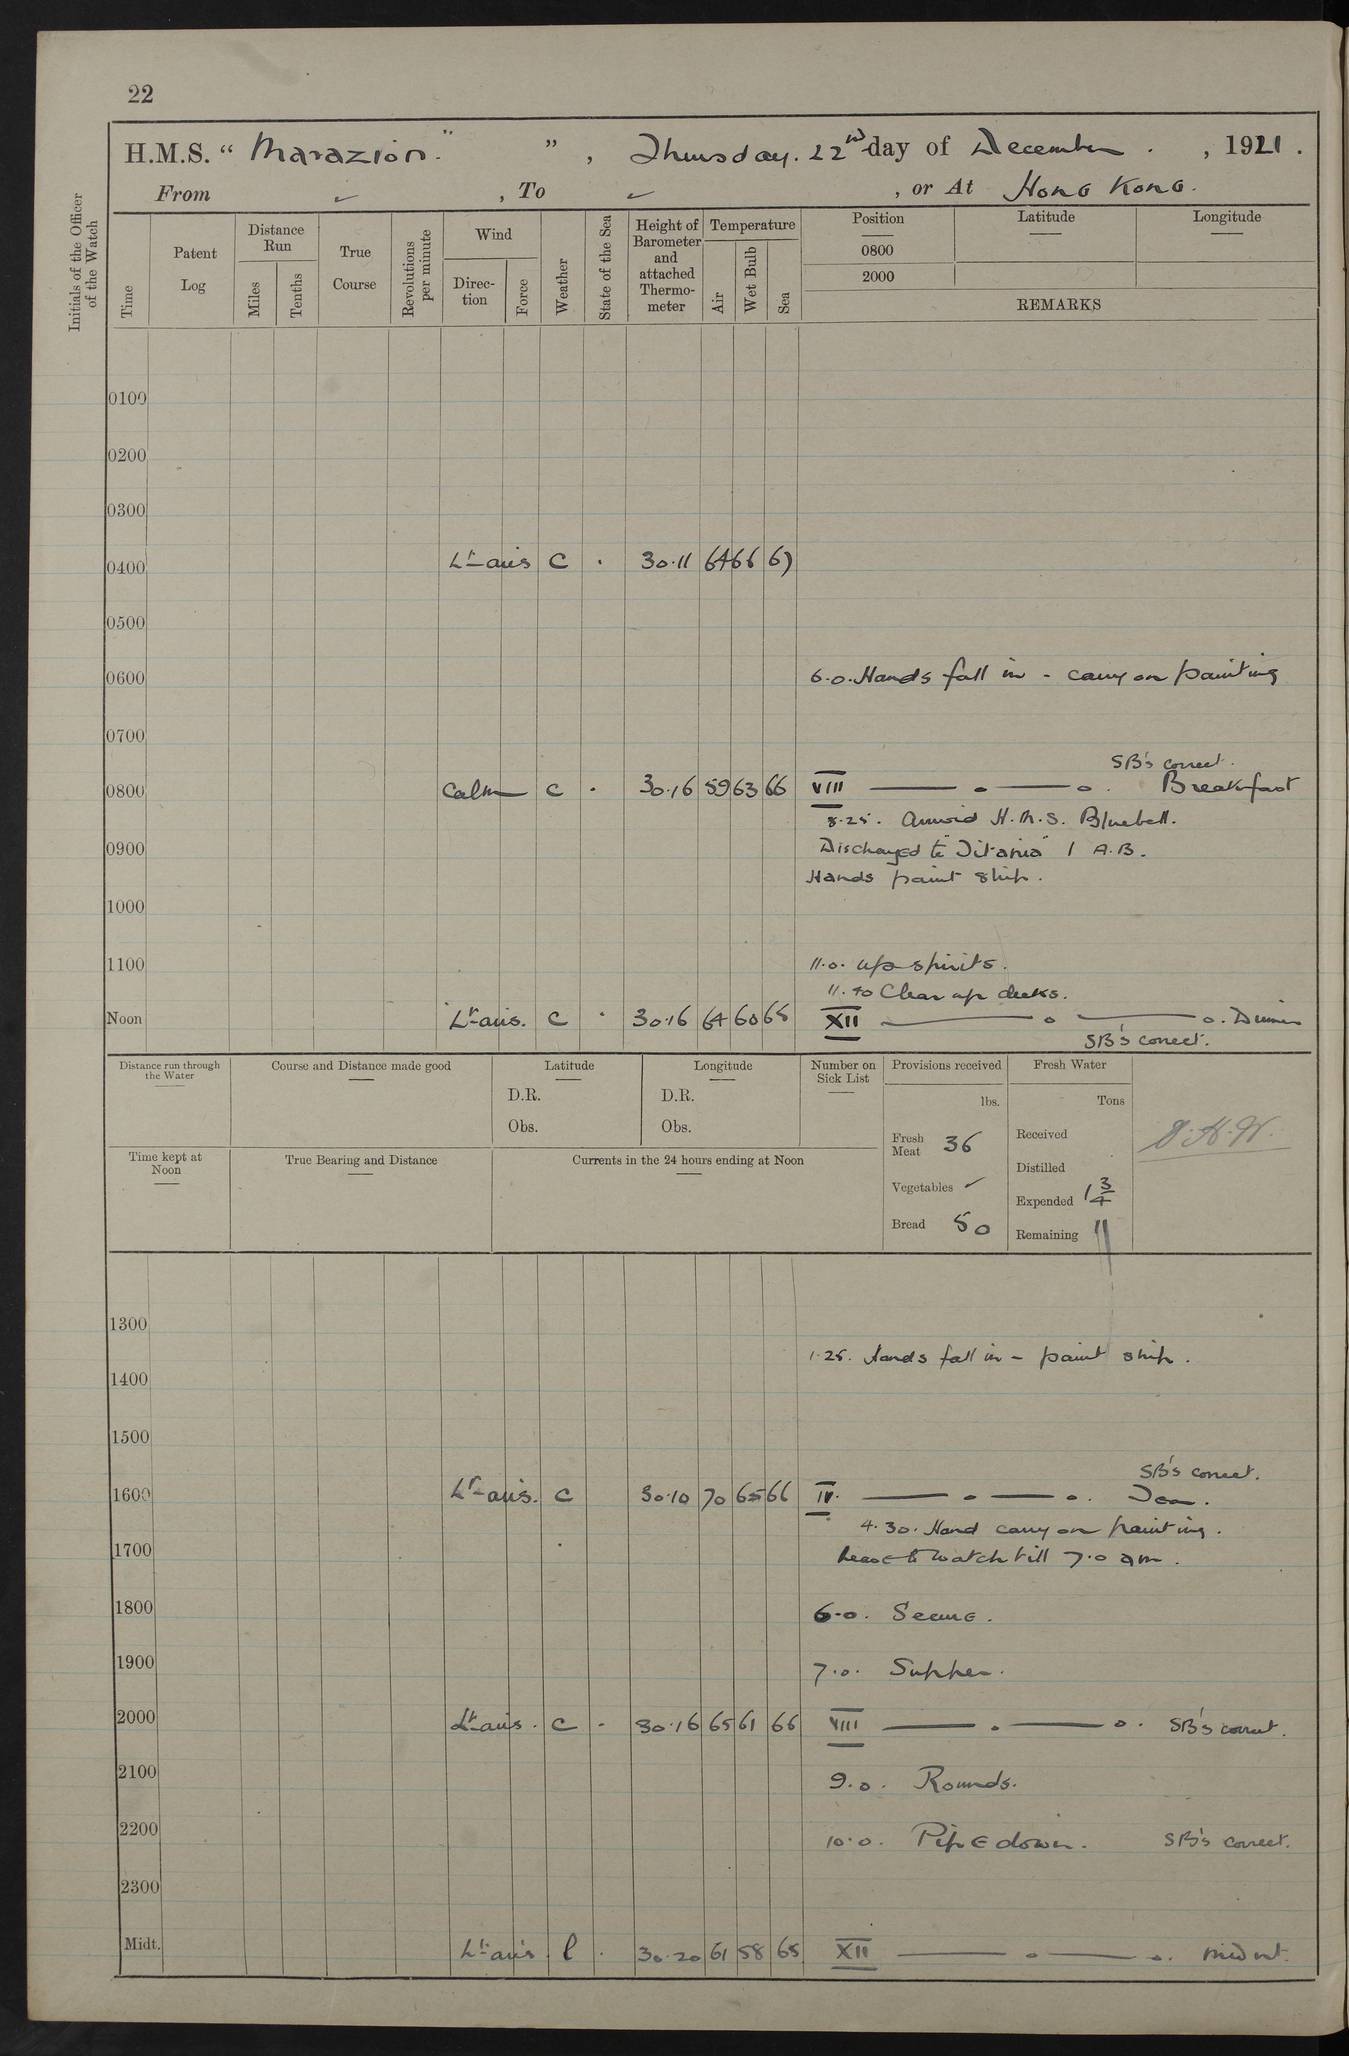 22
H.M.S. “ Marazion. ” , Thursday. 22nd day of December . , 1921 .
From ✓ , To ✓ , or At Hong Kong.
Initials of the Officer of the Watch
Time
Patent Log
Distance Run
Miles
Tenths
True Course
Revolutions per minute
Wind
Direction
Force
Weather
State of the Sea
Height of Barometer and attached Thermometer
Temperature
Air
Wet Bulb
Sea
Position Latitude Longitude
0800
2000
REMARKS
0100
0200
0300
0400 Lt airs C . 30.11 64 66 67
0500
0600 6.0. Hands fall in - carry on painting
0700
SB's correct.
0800 Calm C . 30.16 59 63 66 VIII Breakfast
8.25. Arrived H.M.S. Bluebell.
0900 Discharged to "Titania" 1 A.B.
Hands paint ship.
1000
1100 11.0. Up spirits.
11.40 Clear up decks.
Noon Lt airs. C . 30.16 64 60 65 XII Dinner
SB's correct.
Distance run through the Water
Course and Distance made good
Latitude
D.R.
Obs.
Longitude
D.R.
Obs.
Number on Sick List
Provisions received
lbs.
Fresh Meat 36
Vegetables ✓
Bread 50
Fresh Water
Tons
Received
Distilled
Expended 1 3/4
Remaining 11
Time kept at Noon
True Bearing and Distance
Currents in the 24 hours ending at Noon
1300
1.25. Hands fall in - paint ship.
1400
1500
SB's correct.
1600 Lt airs. C 30.10 70 65 66 IV. Tea.
4.30. Hand carry on painting.
1700 Leave to watch till 7.0 am.
1800 6.0. Secure.
1900 7.0. Supper.
2000 Lt airs. C . 30.16 65 61 66 VIII SB's correct.
2100 9.0. Rounds.
2200 10.0. Pipe down. SB's correct.
2300
Midt. Lt airs. C . 30.20 61 58 65 XII